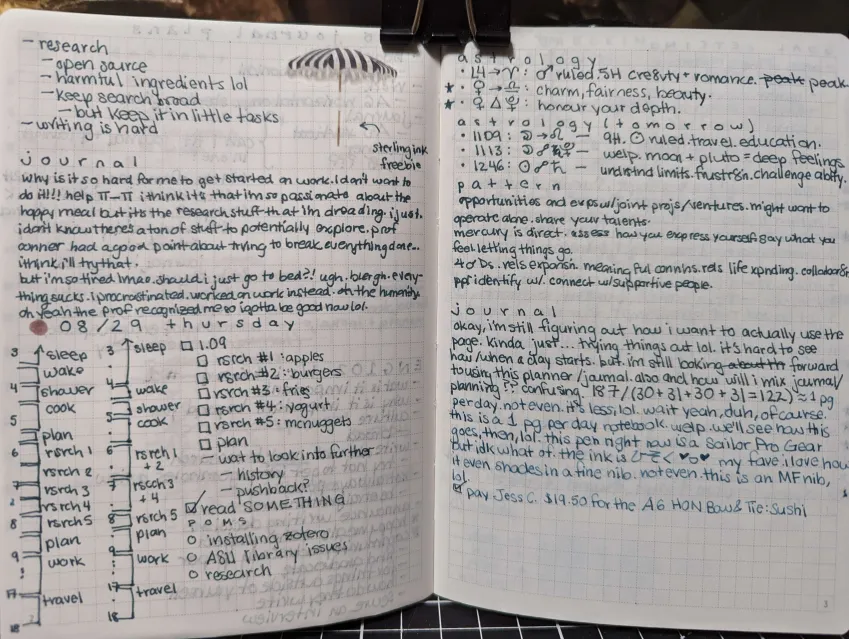 - research
- open source
- harmful ingredients lol
- keep search broad
- but keep it in little tasks
- writing is hard
sterling ink
freebie
journal
why is it so hard for me to get started on work. i don't want to
do it!!! help π-π i think its that im so passionate about the
happy meal but its the research stuff that im dreading. i just.
i don't know theres a ton of stuff to potentially explore. prof
conner had a good point about trying to break everything done...
i think i'll try that.
but i'm so tired lmao. should i just go to bed?! ugh. blergh. every-
thing sucks. i procrastinated. worked on work instead. oh the humanity.
oh yeah the prof recognized me so i gotta be good now lol.
08/29 thursday
3 sleep 3 sleep
wake
4 shower 4 wake
cook shower
5 5 cook
plan
6 rsrch 1 6 rsrch 1
rsrch 2 + 2
7 rsrch 3 7 rsrch 3
rsrch 4 + 4
8 rsrch 5 8 rsrch 5
plan plan
9 work 9 work
17 travel 17 travel
18 18
1.09
rsrch #1: apples
rsrch #2: burgers
rsrch #3: fries
rsrch #4: yogurt
rsrch #5: mcnuggets
plan
- wat to look into further
- history
- pushback?
read SOMETHING
poms
installing zotero
ASU library issues
research
astrology
• 14→♈: ♂ ruled. 5H cre8vty + romance. peak peak.
★ • ♀→♎: charm, fairness, beauty.
★ • ♀△♇: honour your depth.
astrology (tomorrow)
• 1109: ☽→♌ — 9H. ☉ ruled. travel. education.
• 1113: ☽☍♇ — welp. moon + pluto = deep feelings
• 1246: ☉☍♄ — undrstnd limits. frustr8n. challenge ablty.
pattern
opportunities and exps w/joint projs/ventures. might want to
operate alone. share your talents.
mercury is direct. assess how you express yourself. say what you
feel. letting things go.
4 of Ds. rels expansn. meaningful connxns. rels life xpnding.
ppl identify w/. connect w/ supportive people.
journal
okay, i'm still figuring out how i want to actually use the
page. kinda just... trying things out lol. it's hard to see
how/when a day starts. but. im still looking about th forward
to using this planner/journal. also and how will i mix journal/
planning?? confusing. 187/(30+31+30+31=122) ≈ 1 pg
per day. not even. it's less, lol. wait yeah, duh, of course.
this is a 1 pg per day notebook. welp. we'll see how this
goes, then, lol. this pen right now is a Sailor Pro Gear
but idk what of. the ink is my fave. i love how
it even shades in a fine nib. not even. this is an MF nib,
lol.
pay Jess C. $19.50 for the A6 HON Bow & Tie: Sushi
3